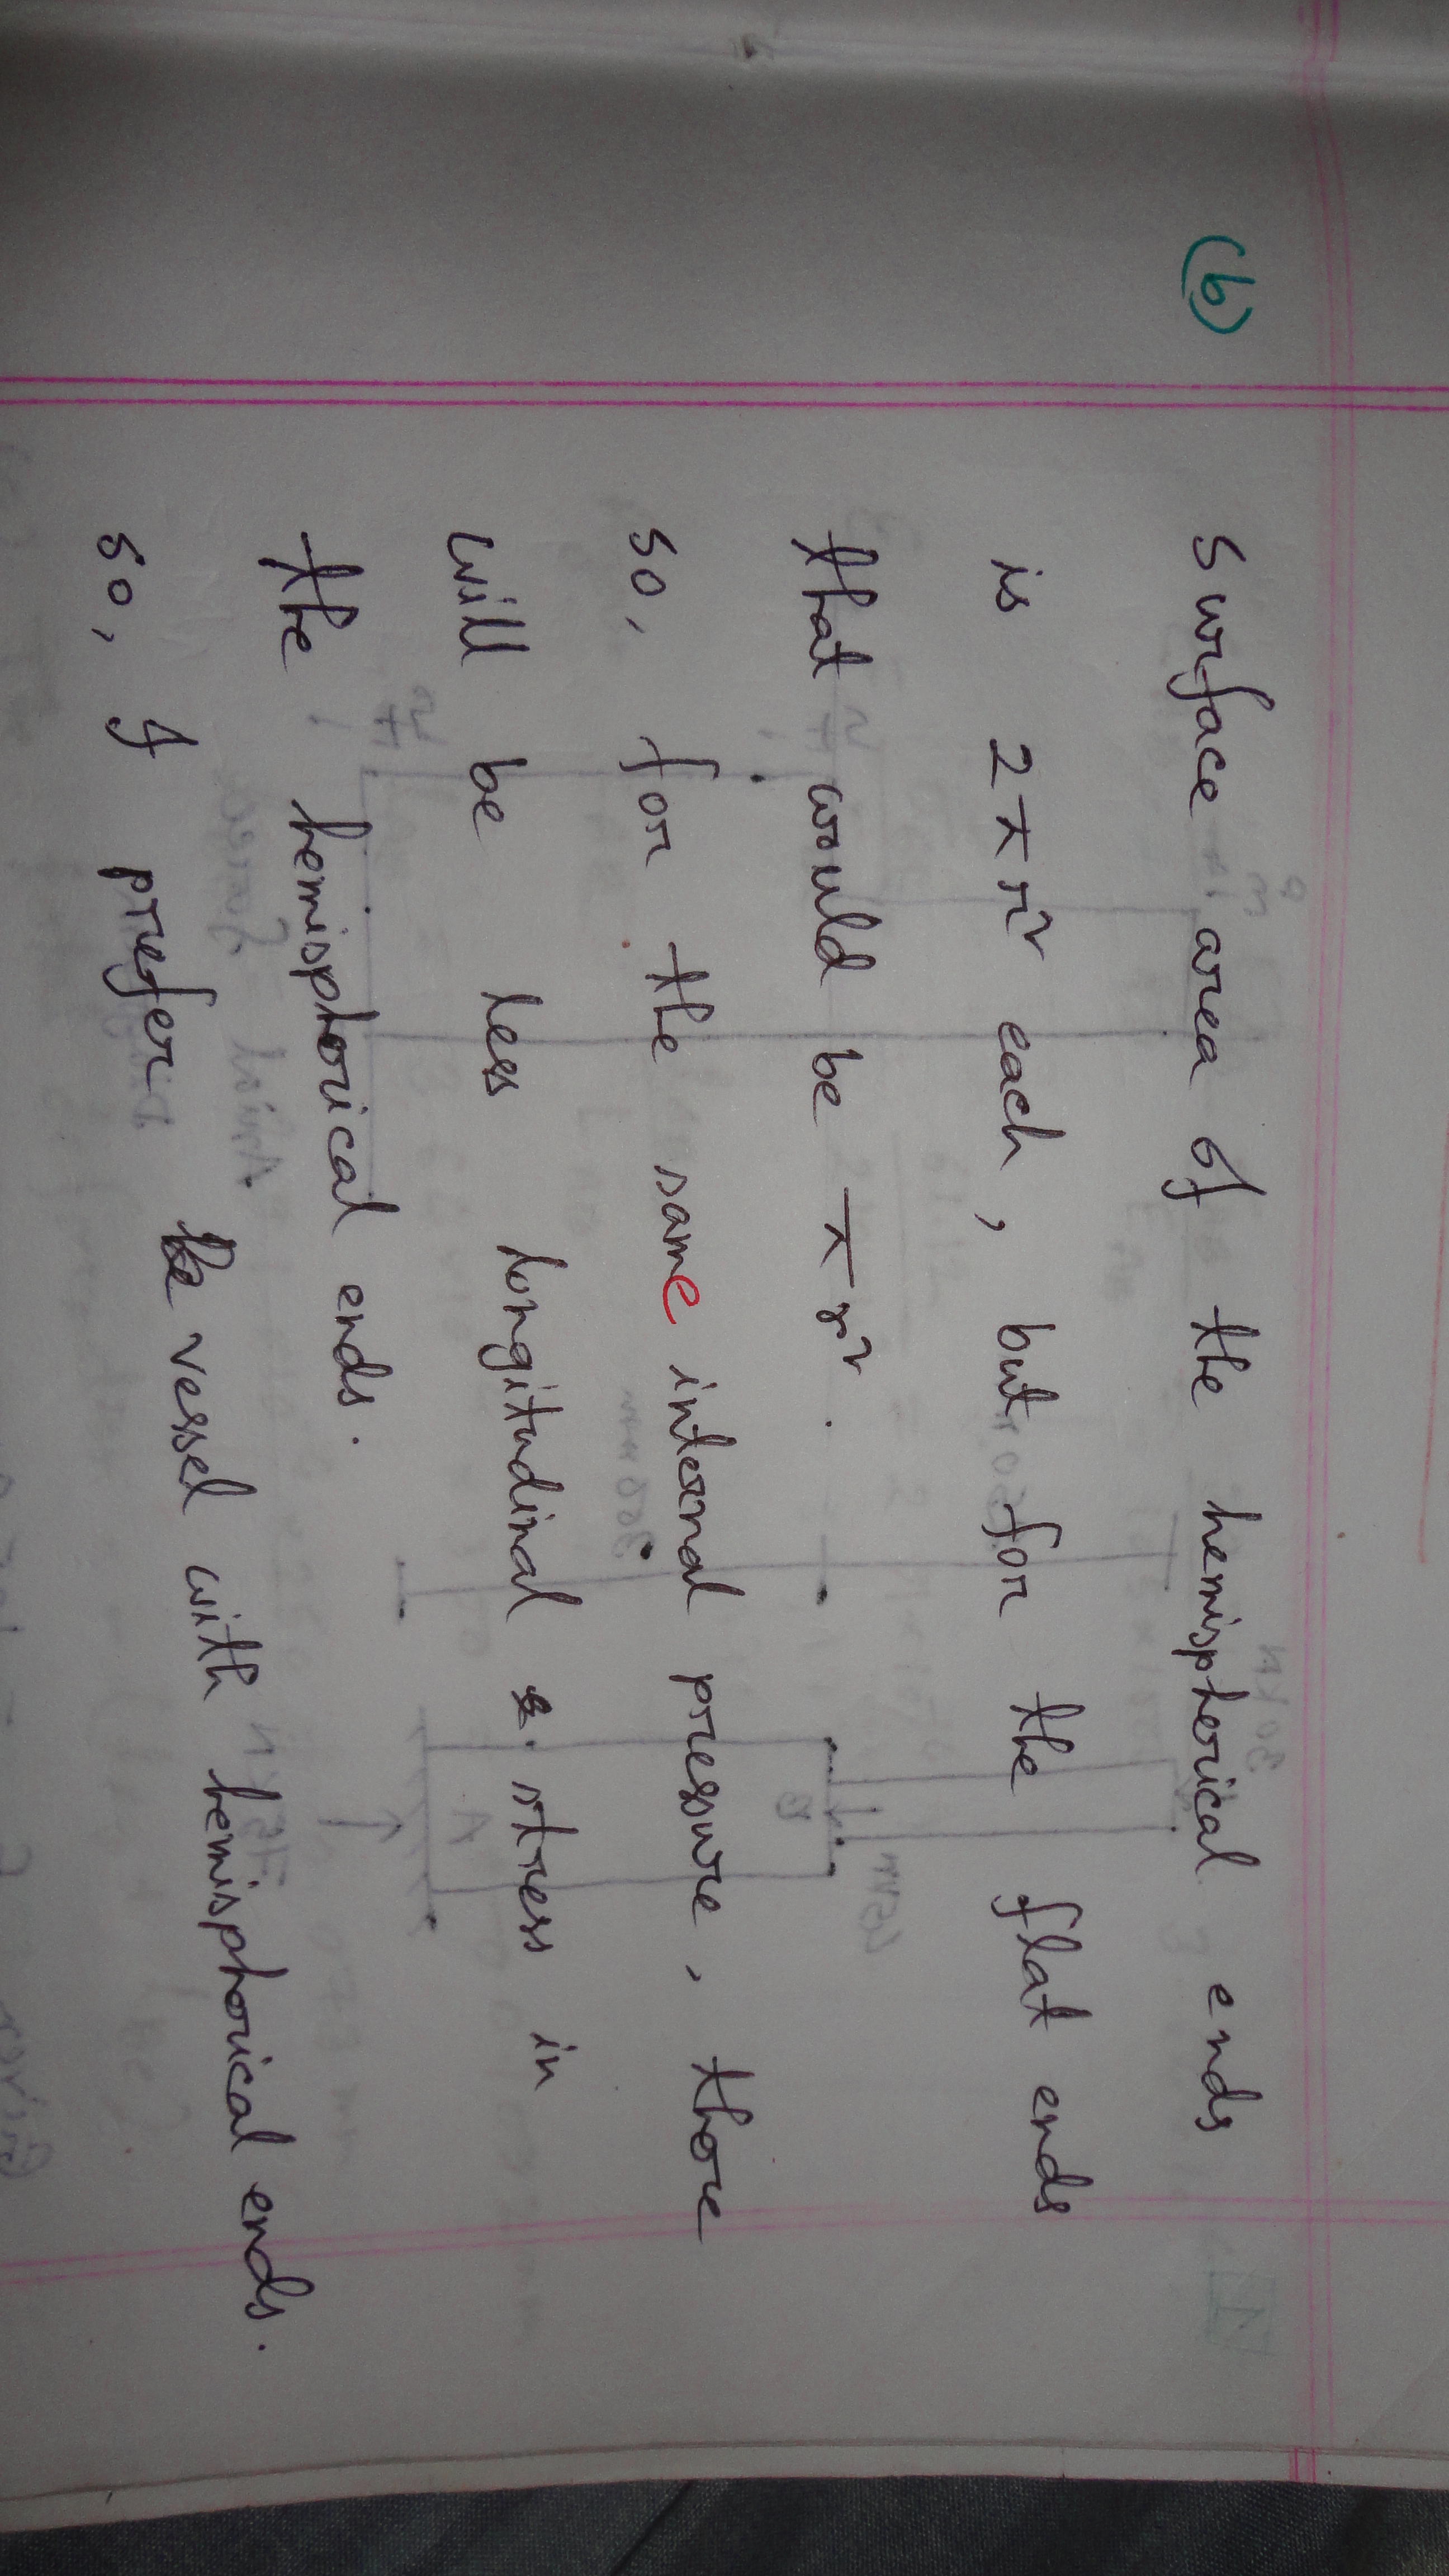 (b) surface area of the hemispherical ends
is 2πr² each, but for the flat ends
that would be πr².
so, for the same internal pressure, there
will be less longitudinal stress in
the hemispherical ends.
so, I prefer vessel with hemispherical ends.